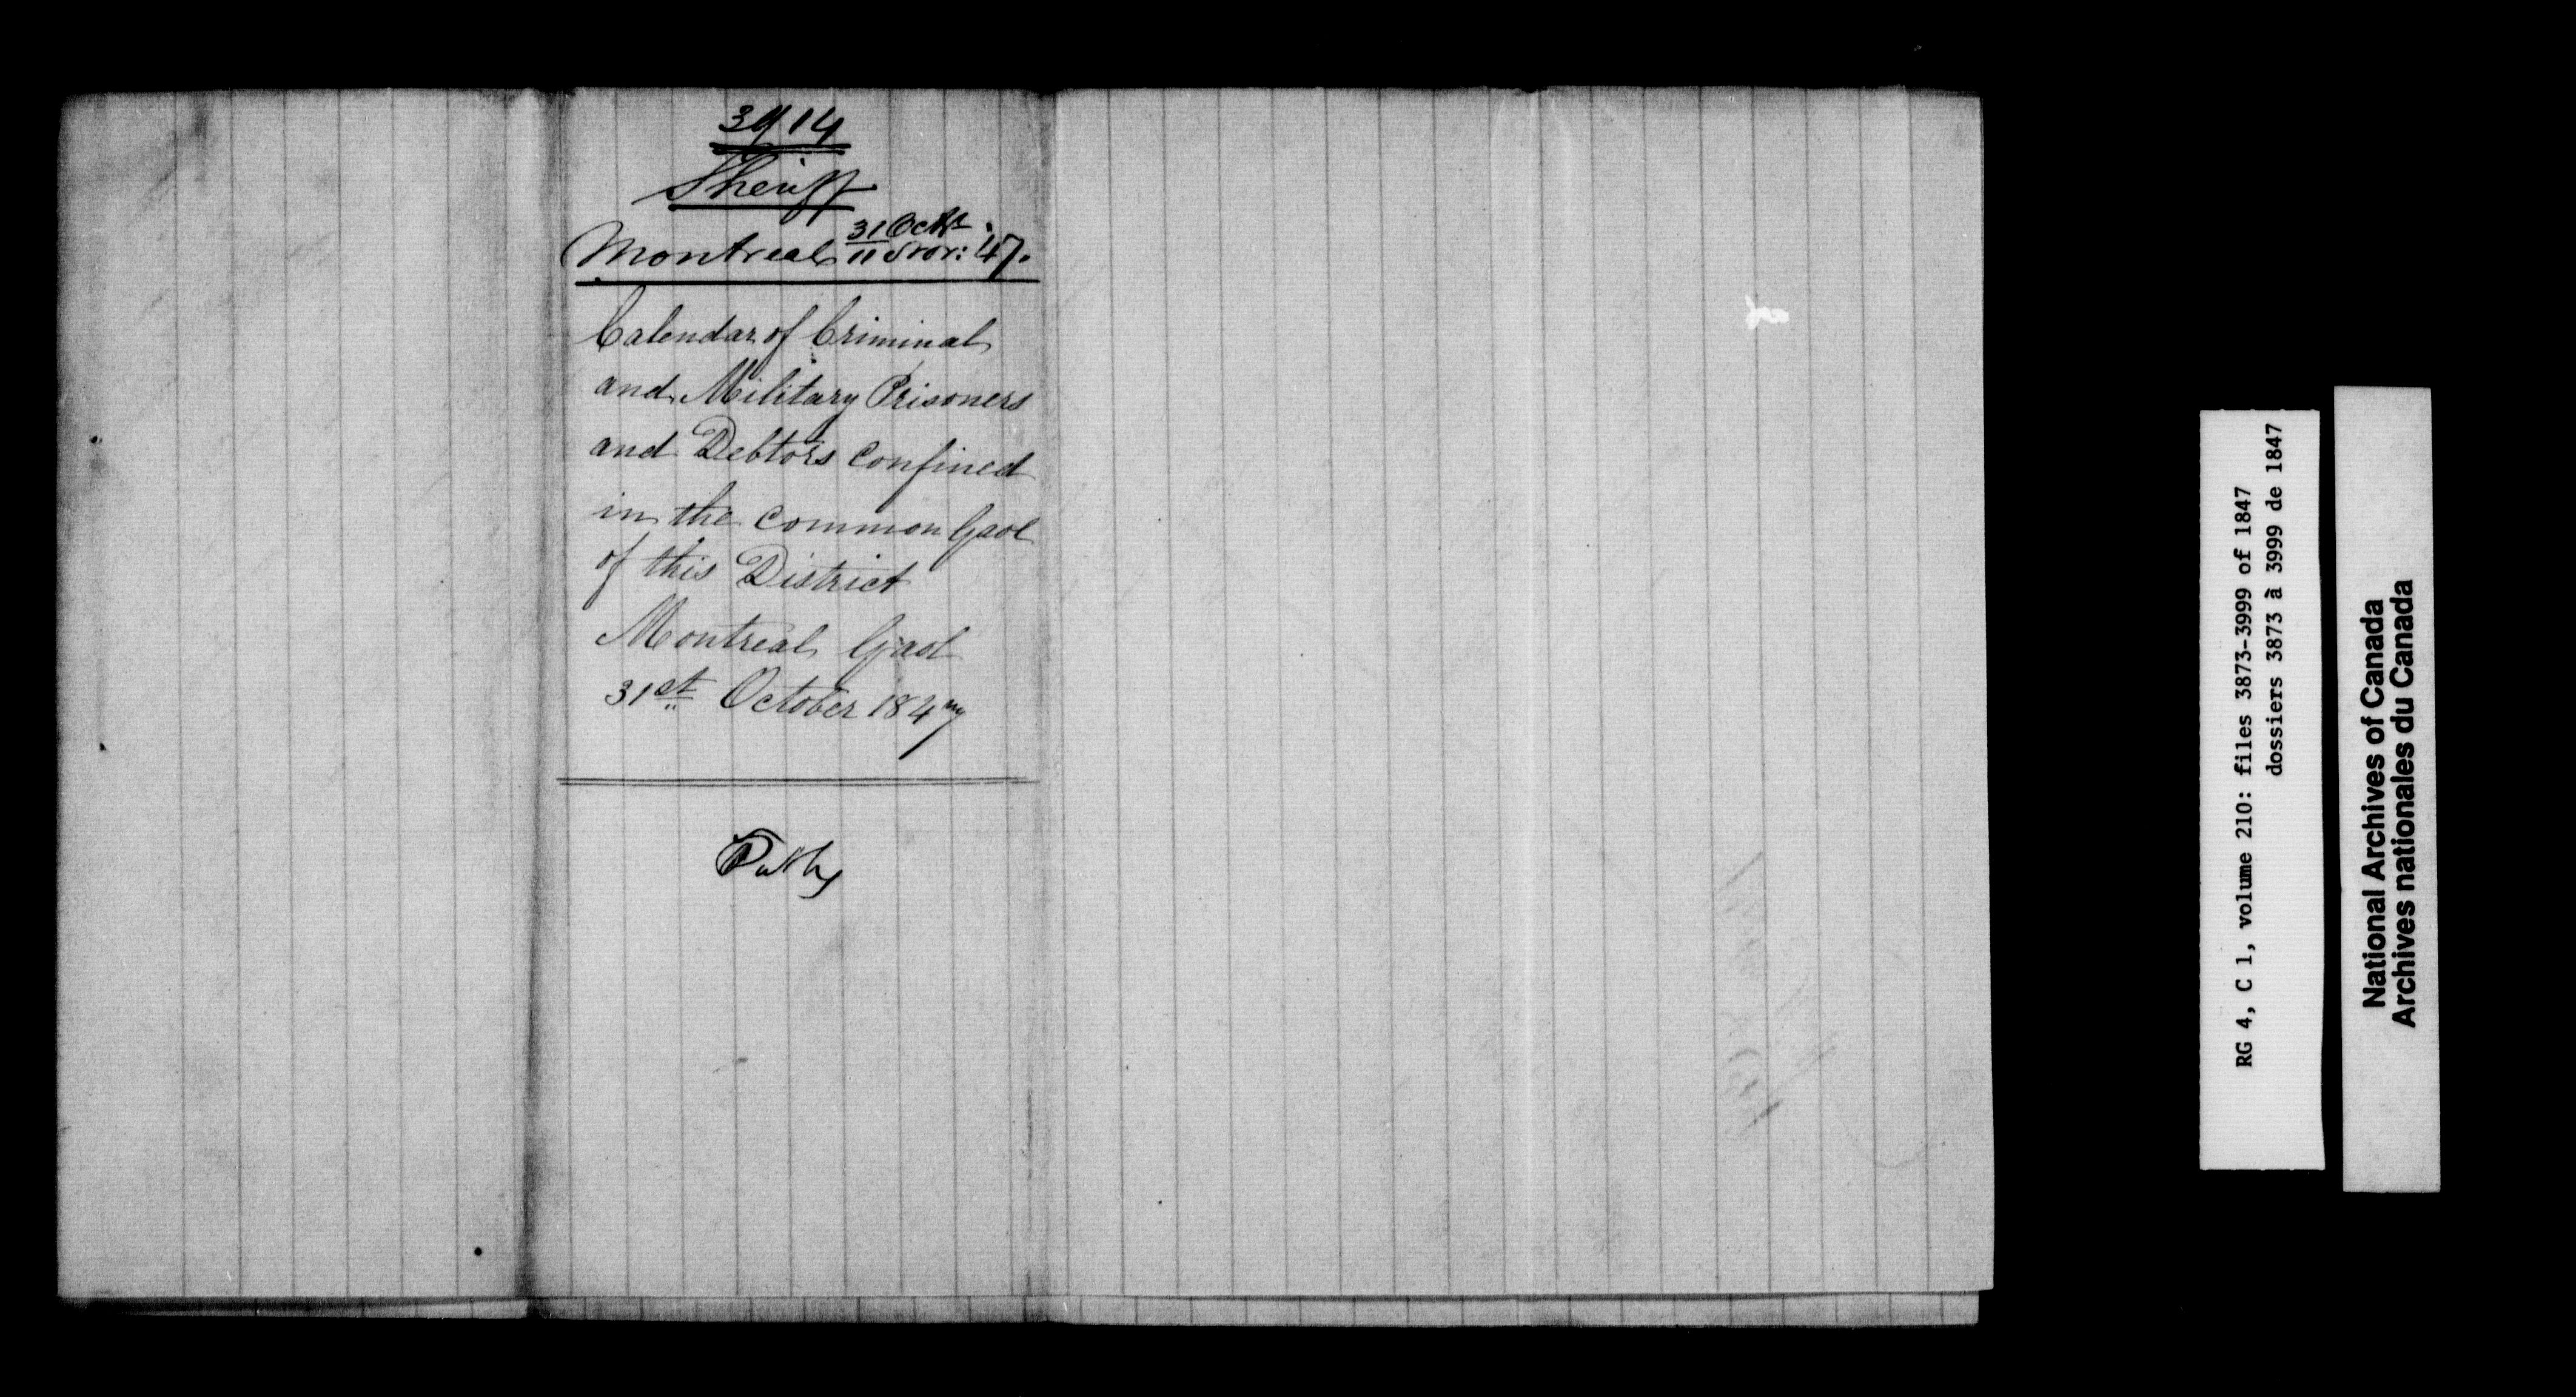 3914
Sheriff
Montreal 31 Octr / 11 Nov: '47.
Calendar of Criminal
and Military Prisoners
and Debtors Confined
in the Common Gaol
of this District
Montreal Gaol
31st October 1847
RG 4, C 1, volume 210: files 3873-3999 of 1847
dossiers 3873 à 3999 de 1847
National Archives of Canada
Archives nationales du Canada